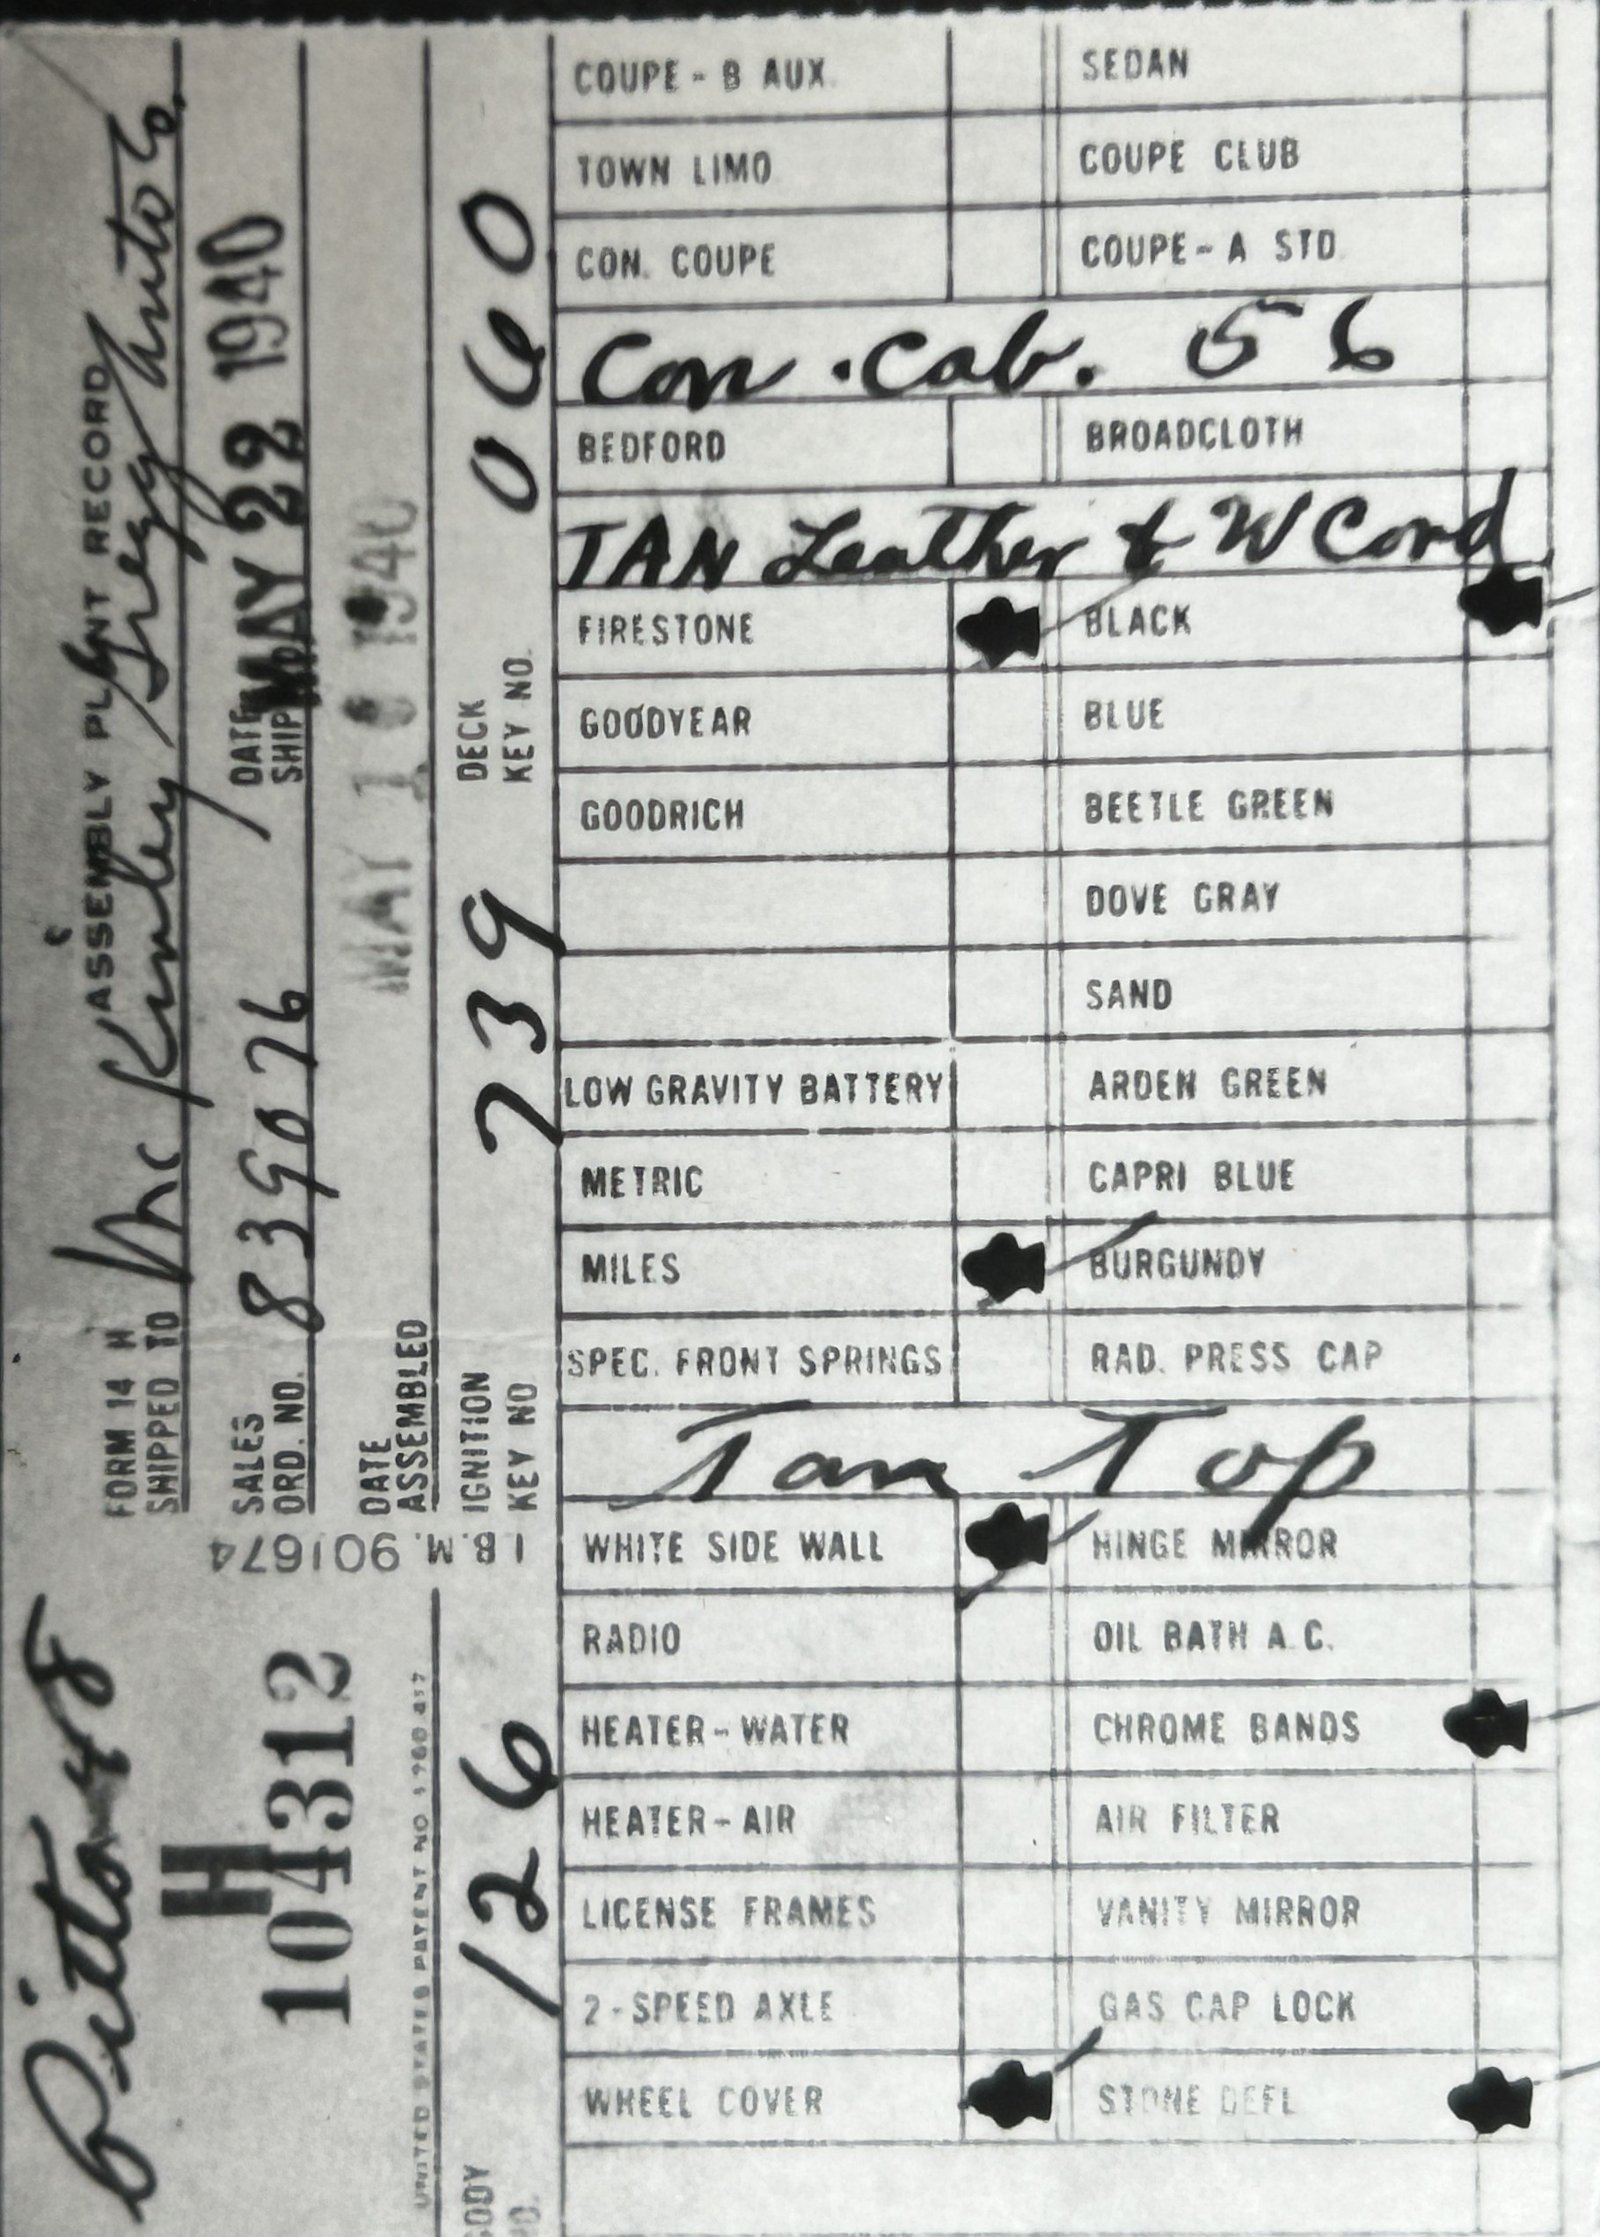 ASSEMBLY PLANT RECORD
FORM 14 H
SHIPPED TO Mc Kinley Gregg Auto Co.
SALES ORD. NO. 839076
DATE SHIP'D MAY 22 1940
DATE ASSEMBLED MAY 1 6 1940
IGNITION KEY NO 739
DECK KEY NO. 060
I.B.M. 901674
H
104312
UNITED STATES PATENT NO 1 780 857
BODY NO. 126
COUPE - B AUX. SEDAN
TOWN LIMO COUPE CLUB
CON. COUPE COUPE - A STD.
Con. Cab. 56
BEDFORD BROADCLOTH
TAN Leather & W Cord
FIRESTONE BLACK
GOODYEAR BLUE
GOODRICH BEETLE GREEN
DOVE GRAY
SAND
LOW GRAVITY BATTERY ARDEN GREEN
METRIC CAPRI BLUE
MILES BURGUNDY
SPEC. FRONT SPRINGS RAD. PRESS CAP
Tan Top
WHITE SIDE WALL HINGE MIRROR
RADIO OIL BATH A.C.
HEATER - WATER CHROME BANDS
HEATER - AIR AIR FILTER
LICENSE FRAMES VANITY MIRROR
2 - SPEED AXLE GAS CAP LOCK
WHEEL COVER STONE DEFL